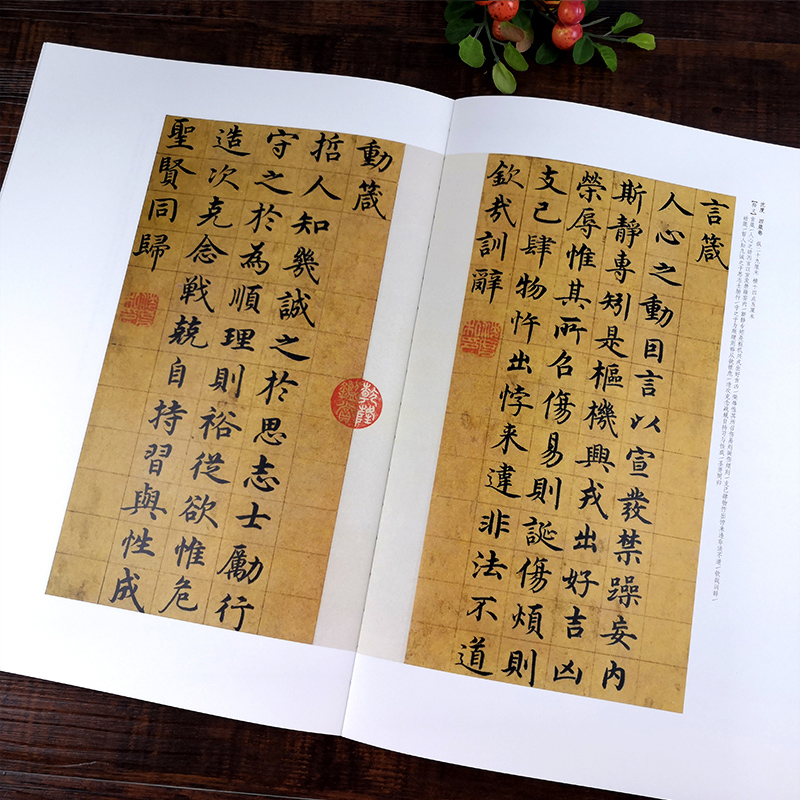 沈度 四箴卷
言箴
人心之動因言以宣發禁躁妄內
斯靜專矧是樞機興戎出好吉凶
榮辱惟其所召傷易則誕傷煩則
支己肆物忤出悖来違非法不道
欽哉訓辭
動箴
哲人知幾誠之於思志士勵行
守之於為順理則裕從欲惟危
造次克念戰兢自持習與性成
聖賢同歸
乾隆鑑賞